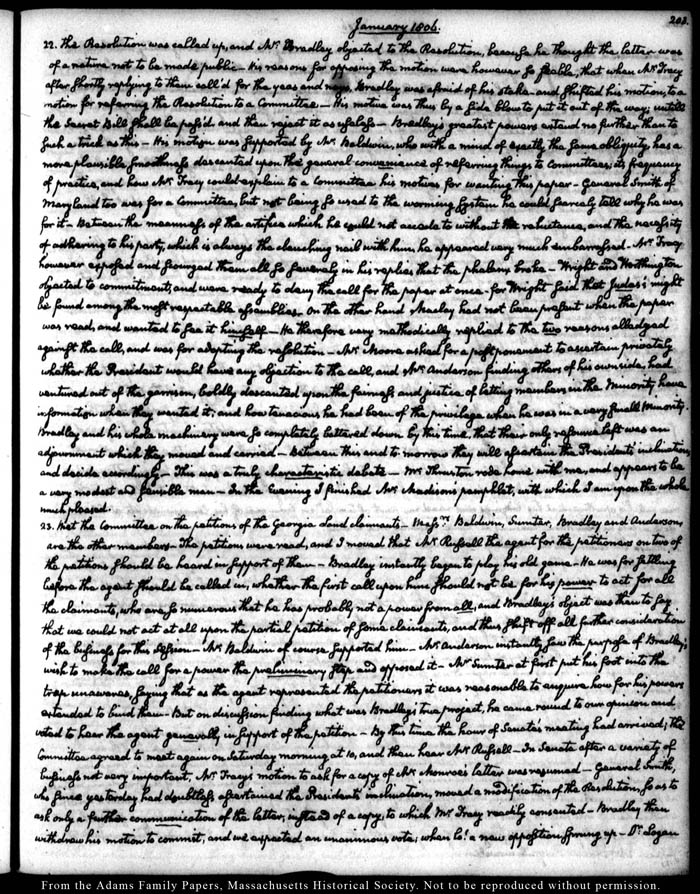 January 1806.
203.
22. the Resolution was called up, and Mr. Bradley objected to the Resolution, because he thought the letter was
of a nature not to be made public. His reasons for opposing the motion were however so feeble, that when Mr. Tracy
after shortly replying to them call'd for the yeas and nays, Bradley was afraid of his stake and shifted his motion, to a
motion for referring the Resolution to a Committee — His motive was thus by a side blow to put it out of the way; untill
the Secret Bill shall be pass'd and then reject it as useless — Bradley's greatest powers extend no further than to
such a trick as this — His motion was supported by Mr. Baldwin, who with a mind of exactly the same obliquity, has a
more plausible smoothness descanted upon the general convenience of referring things to Committees, its frequency
of practice, and how Mr. Tracy could explain to a Committee his motives for wanting this paper — General Smith of
Maryland too was for a Committee, but not being so used to the worming system he could scarcely tell why he was
for it — Between the meanness of the artifice which he could not accede to without reluctance, and the necessity
of adhering to his party, which is always the clenching nail with him, he appeared very much embarrassed — Mr. Tracy
however exposed and scourged them all so severely in his replies, that the phalanx broke — Wright and Worthington
objected to commitment, and were ready to deny the call for the paper at once — for Wright said that Judas's might
be found among the most respectable assemblies. On the other hand Maclay had not been present when the paper
was read, and wanted to see it himself — He therefore very methodically replied to the two reasons alledged
against the call, and was for adopting the resolution — Mr. Moore asked for a postponement to ascertain privately
whether the President would have any objection to the call, and Mr. Anderson finding others of his own side, had
ventured out of the garrison, boldly descanted upon the fairness and justice of letting members in the Minority, have
information when they wanted it; and how tenacious he had been of the privilege when he was in a very small Minority —
Bradley and his whole machinery were so completely battered down by this time, that their only resource left was an
adjournment which they moved and carried — Between this and to morrow they will ascertain the President's inclinations
and decide accordingly — This was a truly characteristic debate — Mr. Thruston rode home with me, and appears to be
a very modest and sensible man — In the Evening I finished Mr. Madison's pamphlet, with which I am upon the whole
much pleased.
23. Met the Committee on the petitions of the Georgia Land claimants — Messrs. Baldwin, Sumter, Bradley and Anderson,
are the other members — The petitions were read, and I moved that Mr. Russell the agent for the petitioners on two of
the petitions should be heard in support of them — Bradley instantly began to play his old game — He was for settling
before the agent should be called in, whether the first call upon him should not be for his power to act for all
the claimants, who are so numerous that he has probably not a power from all, and Bradley's object was then to say
that we could not act at all upon the partial petition of some claimants, and thus shift off all further consideration
of the business for this session — Mr. Baldwin of course supported him — Mr. Anderson instantly saw the purpose of Bradley's
wish to make the call for a power the preliminary step and opposed it — Mr. Sumter at first put his foot into the
trap unawares, saying that as the agent represented the petitioners it was reasonable to enquire how far his powers
extended to bind them — But on discussion finding what was Bradley's true project, he came round to our opinion and,
voted to hear the agent generally, in support of the petition — By this time the hour of Senate's meeting had arrived; the
Committee agreed to meet again on Saturday morning at 10, and then hear Mr. Russell — In Senate after a variety of
business not very important, Mr. Tracy's motion to ask for a copy of Mr. Monroe's letter was resumed — General Smith,
who since yesterday had doubtless ascertained the President's inclination, moved a modification of the Resolution, so as to
ask only a further communication of the letter, instead of a copy, to which Mr. Tracy readily consented — Bradley then
withdrew his motion to commit, and we expected an unanimous vote; when lo! a new opposition sprung up — Dr. Logan
From the Adams Family Papers, Massachusetts Historical Society. Not to be reproduced without permission.